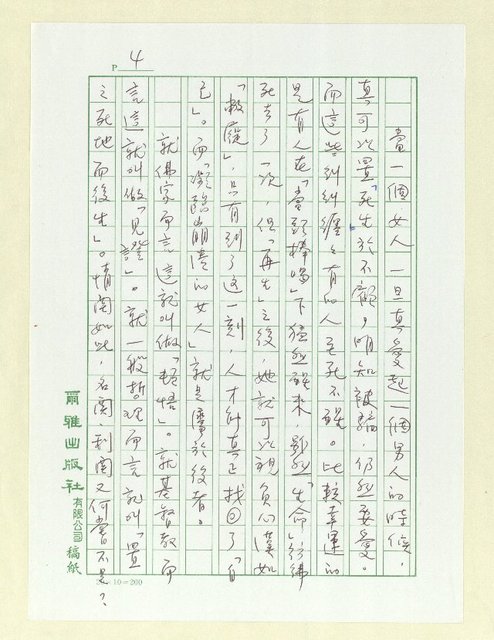 P. 4
當一個女人一旦真愛起一個男人的時候，
真可以置「死生於不顧」，明知被騙，仍然要愛。
而這些糾糾纏纏，有的人至死不醒。比較幸運的
是有人在「當頭棒喝」下猛然醒來，雖然「生命」彷彿
死去了一次，但「再生」之後，她就可以視負心漢如
「敝屣」，只有到了這一刻，人才算真正找回了「自
己」。而「瀕臨崩潰的女人」就是屬於後者。
就佛家而言，這就叫做「頓悟」。就基督教而
言，這就叫做「見證」。就一般哲理而言，就叫「置
之死地而後生」。情關如此，名關、利關又何嘗不是？
爾雅出版社有限公司稿紙
10=200